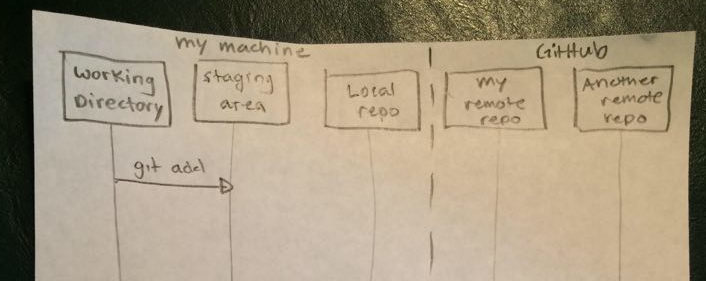 my machine
GitHub
Working
Directory
Staging
area
Local
repo
my
remote
repo
Another
remote
repo
git add